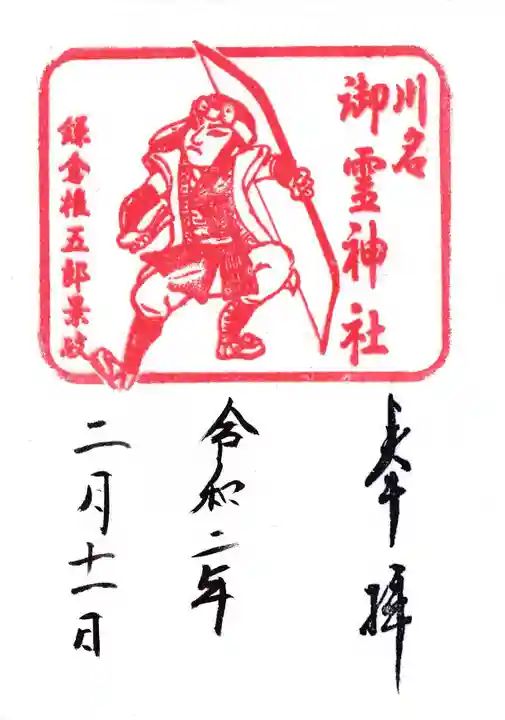 川名
御霊神社
鎌倉権五郎景政
奉拝
令和二年
二月十一日